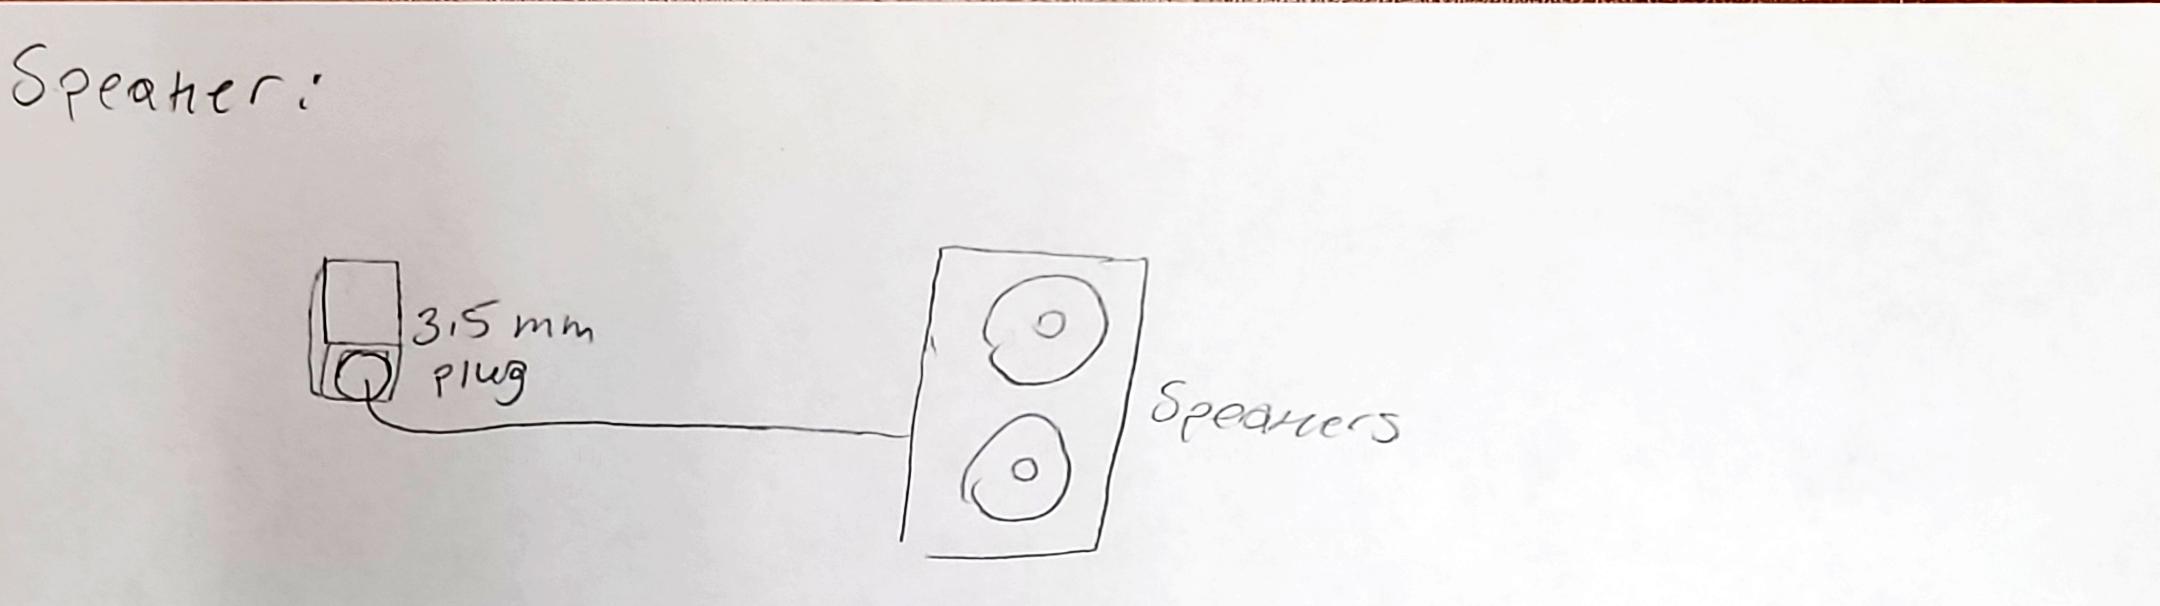 Speaker:
3.5 mm
plug
Speakers